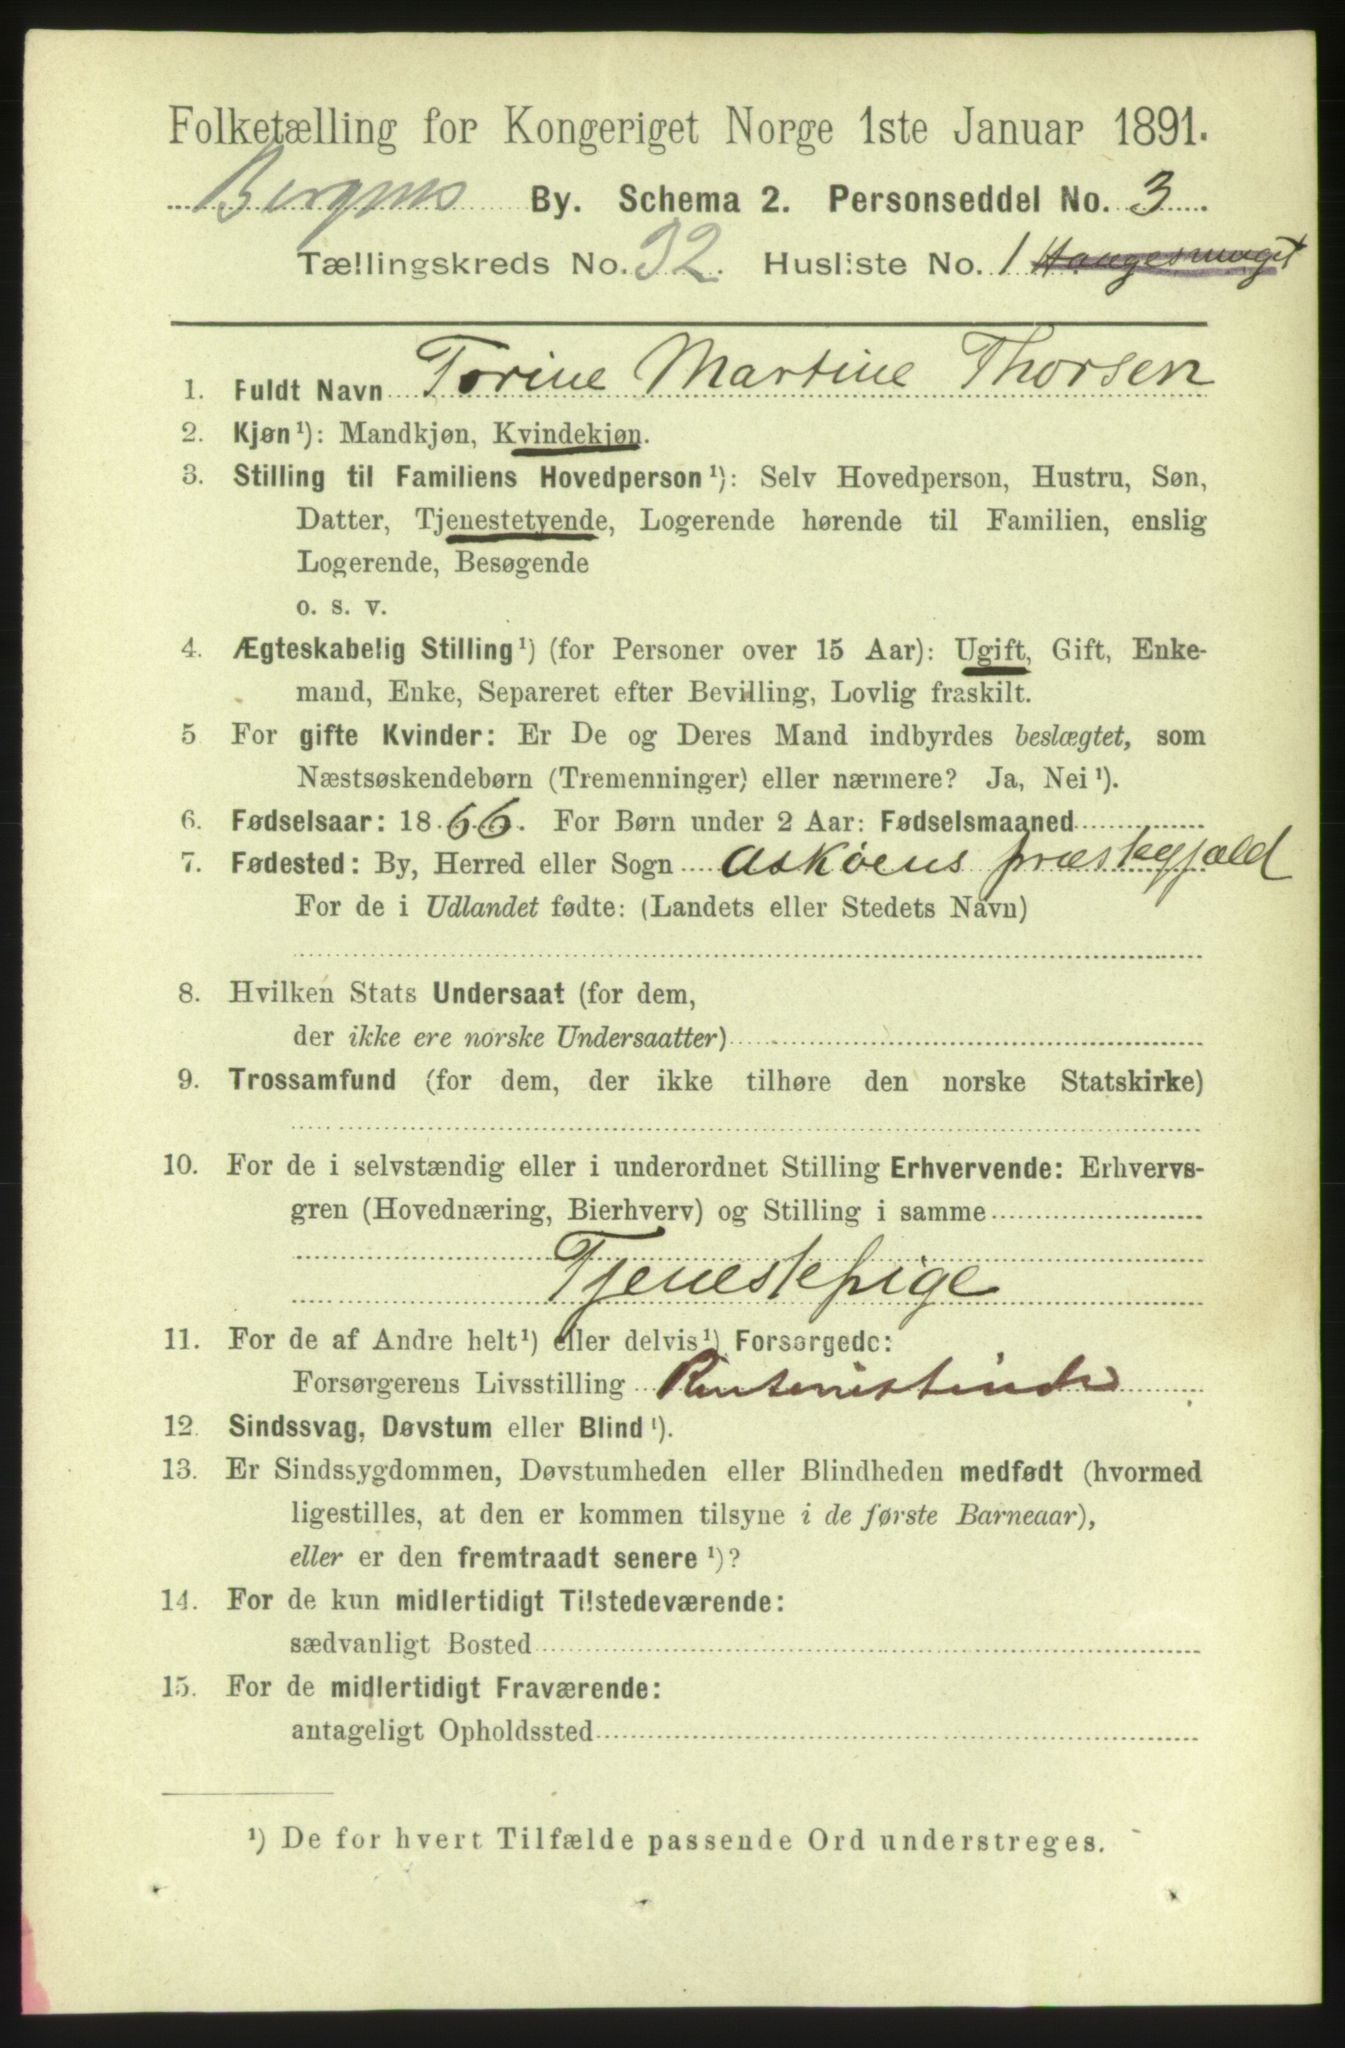 Folketælling for Kongeriget Norge 1ste Januar 1891.
Bergens By. Schema 2. Personseddel No. 3
Tællingskreds No. 32. Husliste No. 1
1. Fuldt Navn Torine Martine Thorsen
2. Kjøn¹): Mandkjøn, Kvindekjøn.
3. Stilling til Familiens Hovedperson¹): Selv Hovedperson, Hustru, Søn,
Datter, Tjenestetyende, Logerende hørende til Familien, enslig
Logerende, Besøgende
o. s. v.
4. Ægteskabelig Stilling¹) (for Personer over 15 Aar): Ugift, Gift, Enke-
mand, Enke, Separeret efter Bevilling, Lovlig fraskilt.
5 For gifte Kvinder: Er De og Deres Mand indbyrdes beslægtet, som
Næstsøskendebørn (Tremenninger) eller nærmere? Ja, Nei¹).
6. Fødselsaar: 1866. For Børn under 2 Aar: Fødselsmaaned
7. Fødested: By, Herred eller Sogn Askøens præstegjæld
For de i Udlandet fødte: (Landets eller Stedets Navn)
8. Hvilken Stats Undersaat (for dem,
der ikke ere norske Undersaatter)
9. Trossamfund (for dem, der ikke tilhøre den norske Statskirke)
10. For de i selvstændig eller i underordnet Stilling Erhvervende: Erhvervs-
gren (Hovednæring, Bierhverv) og Stilling i samme
Tjenestepige
11. For de af Andre helt¹) eller delvis¹) Forsørgede:
Forsørgerens Livsstilling Rentenistinde
12. Sindssvag, Døvstum eller Blind¹).
13. Er Sindssygdommen, Døvstumheden eller Blindheden medfødt (hvormed
ligestilles, at den er kommen tilsyne i de første Barneaar),
eller er den fremtraadt senere¹)?
14. For de kun midlertidigt Tilstedeværende:
sædvanligt Bosted
15. For de midlertidigt Fraværende:
antageligt Opholdssted
¹) De for hvert Tilfælde passende Ord understreges.